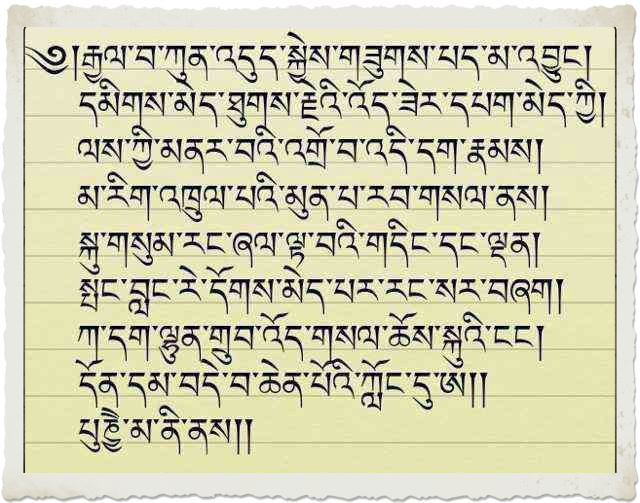 ༄།རྒྱལ་བ་ཀུན་འདུད་སྐྱེས་གཟུགས་པད་མ་འབྱུང།
དམིགས་མེད་ཐུགས་རྗེའི་འོད་ཟེར་དཔག་མེད་ཀྱི།
ལས་ཀྱི་མནར་བའི་འགྲོ་བ་འདི་དག་རྣམས།
མ་རིག་འཁྲུལ་པའི་མུན་པ་རབ་གསལ་ནས།
སྐུ་གསུམ་རང་ཞལ་ལྟ་བའི་གདིང་དང་ལྡན།
སྤང་བླང་རེ་དོགས་མེད་པར་རང་སར་བཞག།
ཀ་དག་ལྷུན་གྲུབ་འོད་གསལ་ཆོས་སྐུའི་ངང།
དོན་དམ་བདེ་བ་ཆེན་པོའི་ཀློང་དུ་ཨ།།
མ་ནི་ནས།།